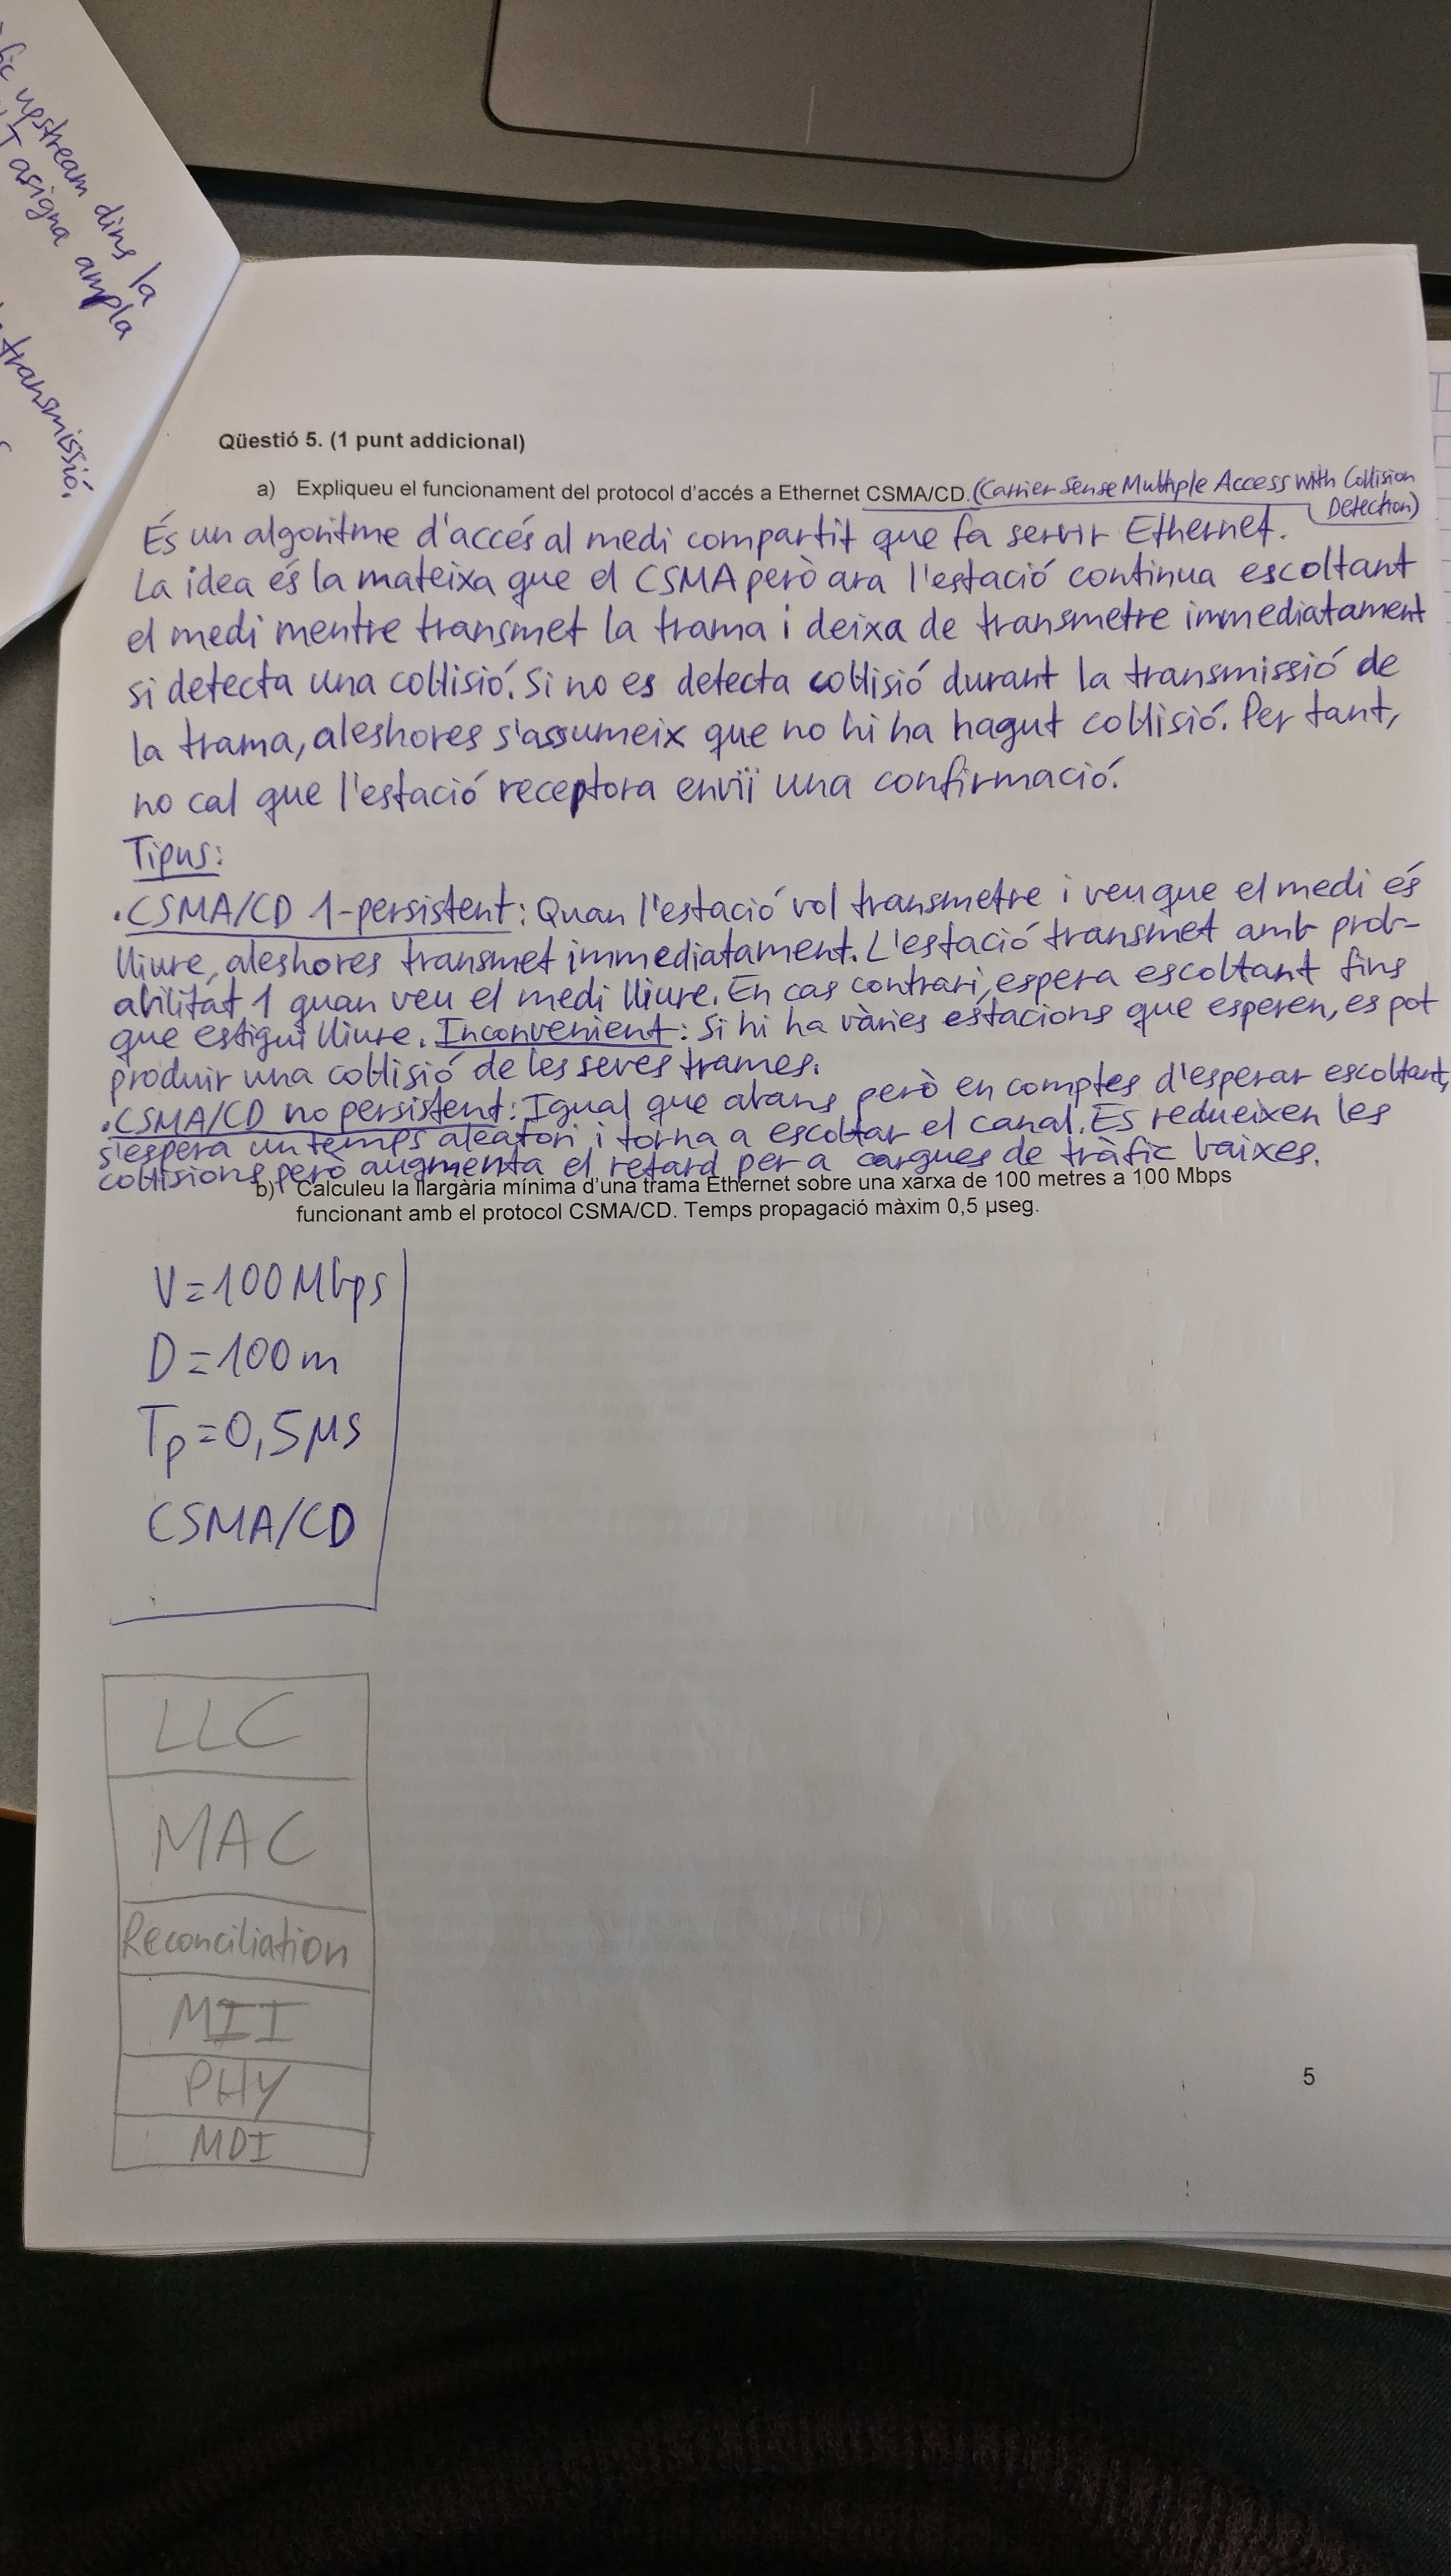 fic upstream dins la
T asigna ampla
transmissió.
Qüestió 5. (1 punt addicional)
a) Expliqueu el funcionament del protocol d'accés a Ethernet CSMA/CD. (Carrier Sense Multiple Access with Collision
Detection)
És un algoritme d'accés al medi compartit que fa servir Ethernet.
La idea és la mateixa que el CSMA però ara l'estació continua escoltant
el medi mentre transmet la trama i deixa de transmetre immediatament
si detecta una col·lisió. Si no es detecta col·lisió durant la transmissió de
la trama, aleshores s'assumeix que no hi ha hagut col·lisió. Per tant,
no cal que l'estació receptora enviï una confirmació.
Tipus:
·CSMA/CD 1-persistent: Quan l'estació vol transmetre i veu que el medi és
lliure, aleshores transmet immediatament. L'estació transmet amb prob-
abilitat 1 quan veu el medi lliure. En cas contrari, espera escoltant fins
que estigui lliure. Inconvenient: Si hi ha vàries estacions que esperen, es pot
produir una col·lisió de les seves trames.
·CSMA/CD no persistent: Igual que abans però en comptes d'esperar escoltant,
s'espera un temps aleatori i torna a escoltar el canal. Es redueixen les
col·lisions però augmenta el retard per a cargues de tràfic baixes.
b) Calculeu la llargària mínima d'una trama Ethernet sobre una xarxa de 100 metres a 100 Mbps
funcionant amb el protocol CSMA/CD. Temps propagació màxim 0,5 μseg.
V=100Mbps
D=100m
Tp=0,5μs
CSMA/CD
LLC
MAC
Reconciliation
MII
PHY
MDI
5